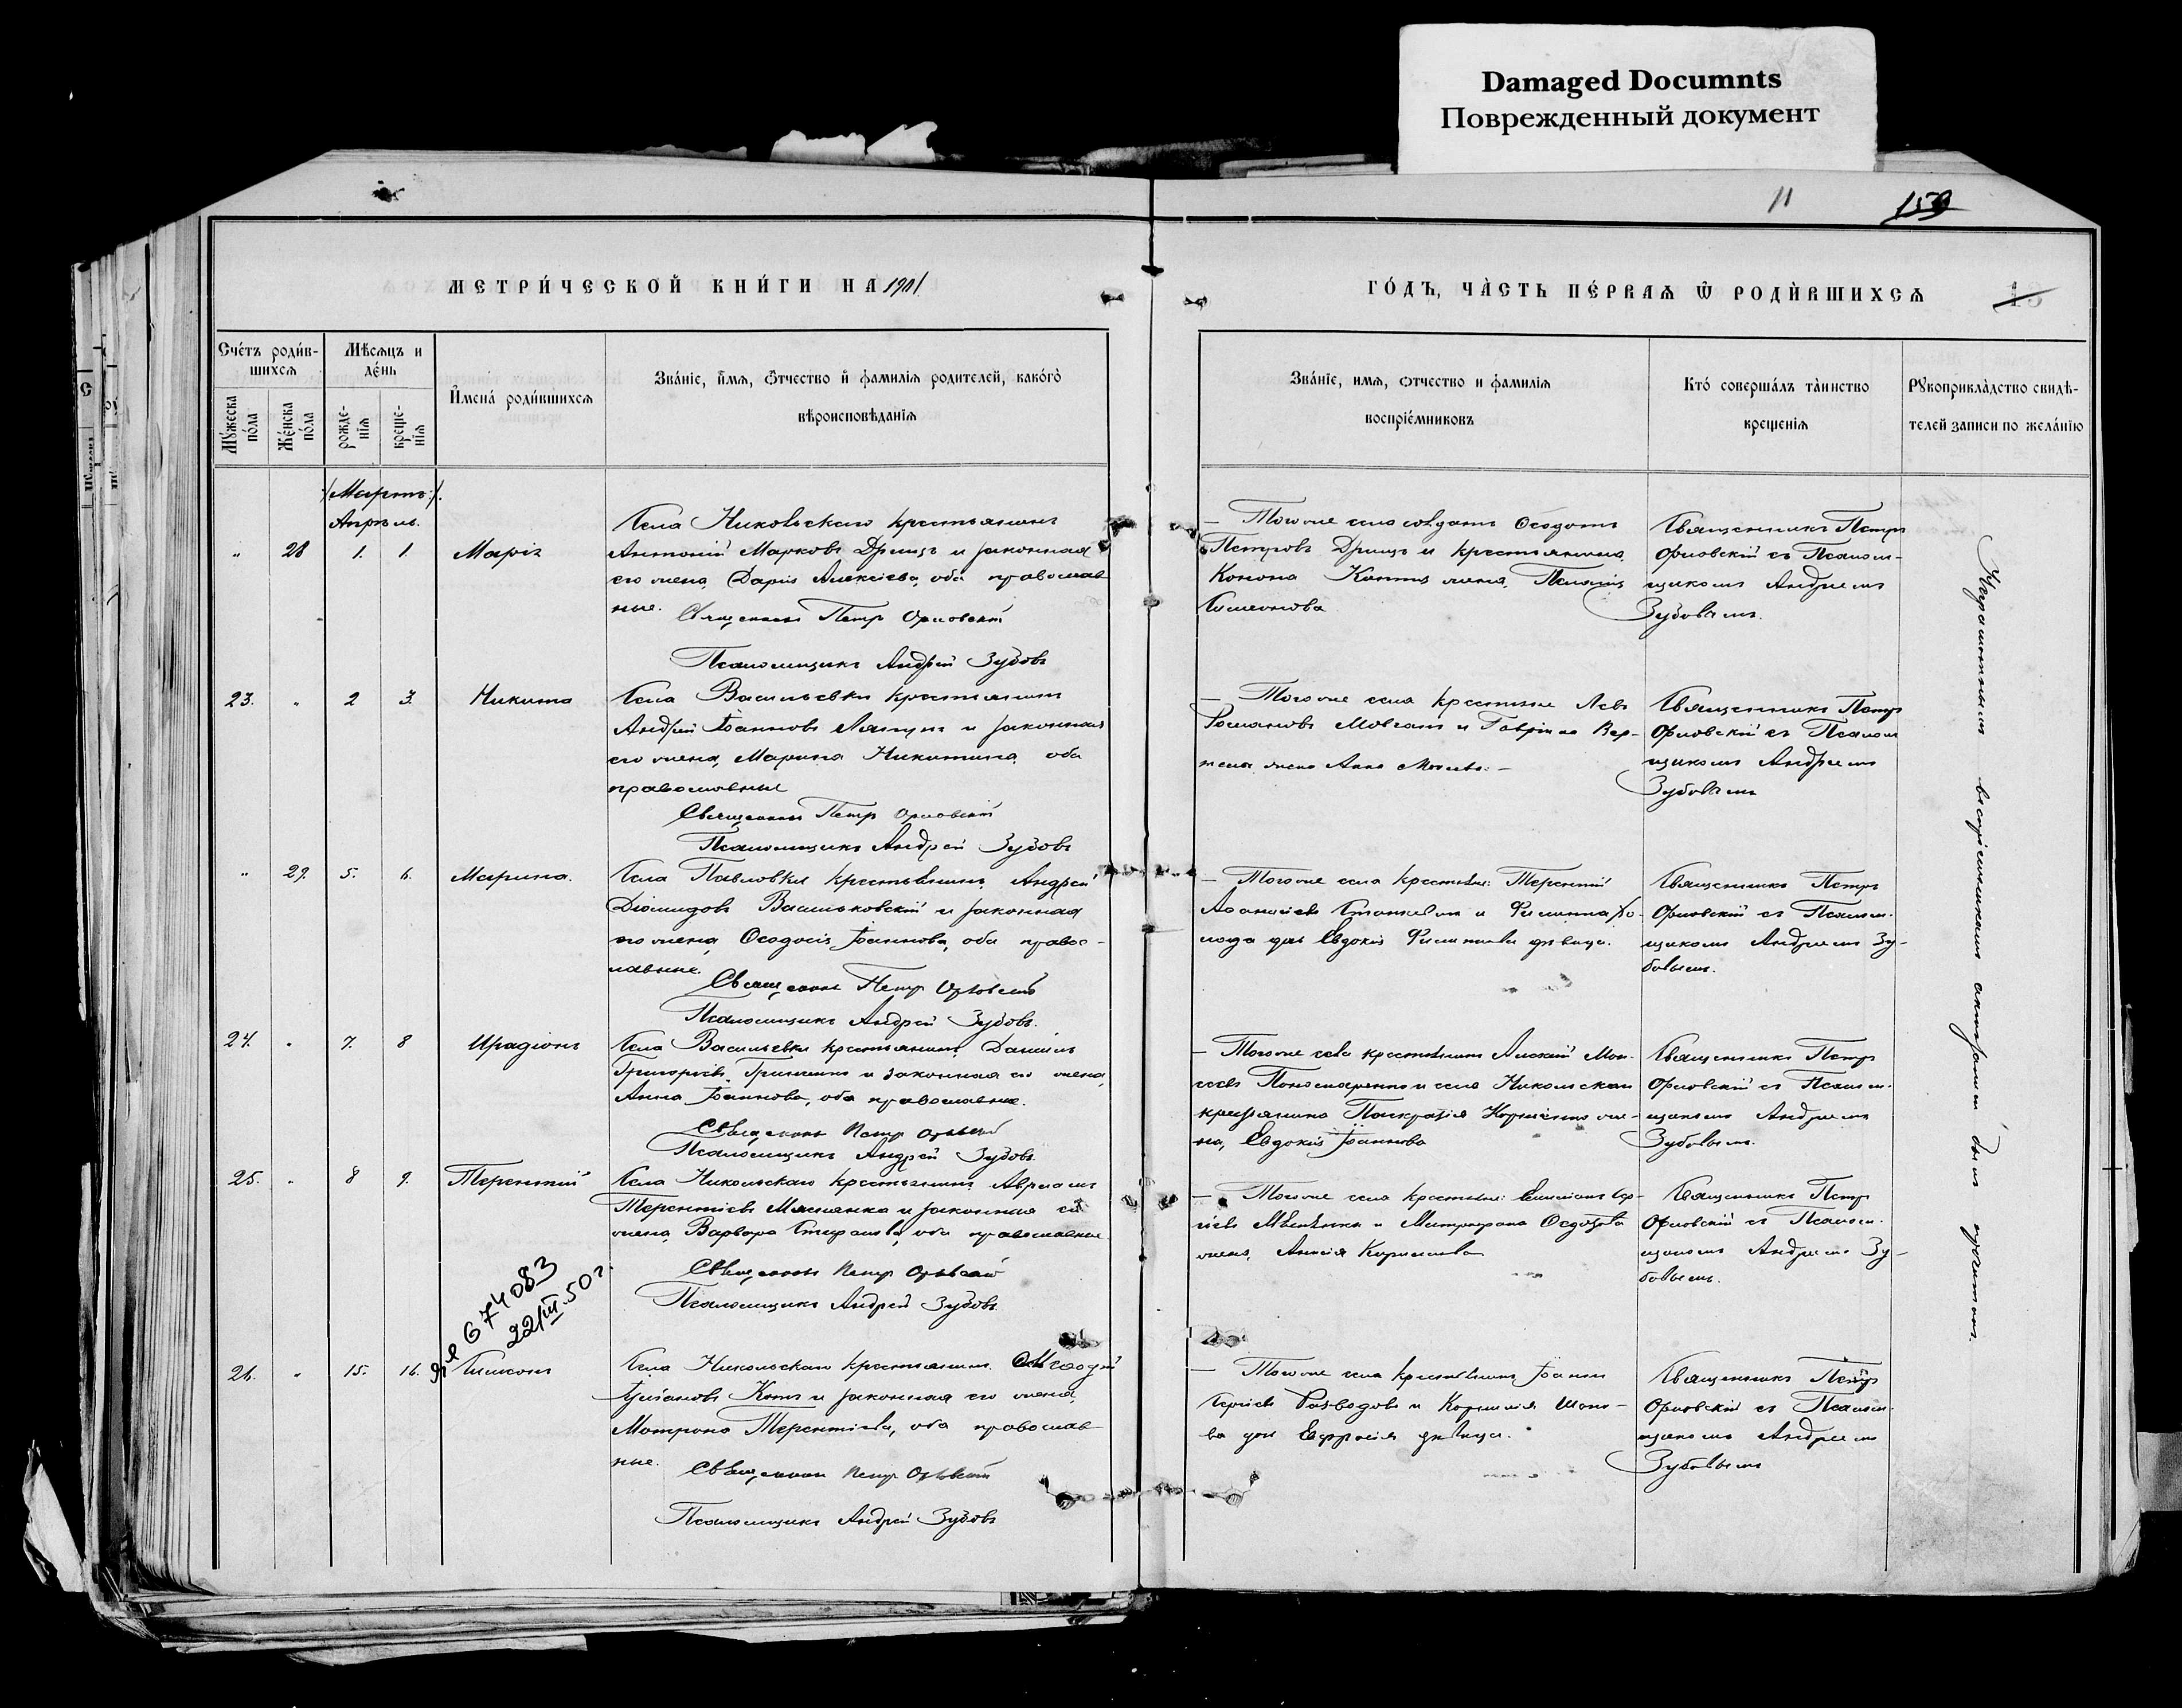 Damaged Documnts
Поврежденный документ
11
159
МЕТРИ́ЧЕСКОЙ КНИ́ГИ НА 1901
ГО́ДЪ, ЧА̀СТЬ ПЕ́РВАѦ Ѡ҆ РОДЍВШИХСѦ
Сче́тъ роди́в-
шихсѧ
Мꙋ́жеска по́ла
Же́нска по́ла
Мѣ́сѧцъ и де́нь
рожде-
нїѧ
креще-
нїѧ
И҆мена̀ роди́вшихсѧ
Зва́нїе, и҆́мѧ, ѻ҆́тчество и҆ фамилїѧ родителей, како́гѡ̀
вѣроисповѣ́данїѧ
Зва́нїе, имѧ, ѻтчество и фамилїѧ
воспрїе́мниковъ
Кто́ соверша́лъ та̀инство
креще́нїѧ
Рꙋкоприкла̀дство свидѣ́-
телей записи по жела́нїю
/Мартъ/.
Апрѣль.
" 28 1. 1 Марія
Села Никольскаго крестьянинъ
Антоній Марковъ Дрищъ и законная
его жена, Дарія Алексѣева, оба православ
ные.
Священникъ Петръ Орловскій
Псаломщикъ Андрей Зубовъ
— Тогоже села солдатъ Ѳеодотъ
Петровъ Дрищъ и крестьянина
Конона жена, Пелагія
Симеонова
Священникъ Петръ
Орловскій съ Псалом-
щикомъ Андреемъ
Зубовымъ.
23. " 2 3. Никита
Села Васильевки крестьянинъ
Андрей Іоанновъ Ляпунъ и законная
его жена, Марина Никитина, оба
православные
Священникъ Петръ Орловскій
Псаломщикъ Андрей Зубовъ
— Тогоже села крестьяне Левъ
Романовъ Мовчанъ и Гавріила
жена Анна
Священникъ Петръ
Орловскій съ Псалом
щикомъ Андреемъ
Зубовымъ
" 29. 5. 6. Марина.
Села Павловки крестьянинъ Андрей
Діомидовъ Васильковскій и законная
его жена, Ѳеодосія Іоаннова, оба правос-
лавные.
Священникъ Петръ Орловскій
Псаломщикъ Андрей Зубовъ.
— Тогоже села крестьяне: Терентій
и Филиппа
дочь Евдокія Филиппова дѣвица.
Священникъ Петръ
Орловскій съ Псалом-
щикомъ Андреемъ Зу-
бовымъ.
24. " 7. 8 Иродіонъ
Села Васильевки крестьянинъ Даніилъ
Григорьевъ Гришинъ и законная его жена,
Анна Іоаннова, оба православные.
Священникъ Петръ Орловскій
Псаломщикъ Андрей Зубовъ.
— Тогоже села крестьянинъ Алексій Мои-
сеевъ Пономаренко и села Никольскаго
крестьянина Панкратія Корніенко же-
на, Евдокія Іоаннова
Священникъ Петръ
Орловскій съ Псалом-
щикомъ Андреемъ
Зубовымъ.
25. " 8 9. Терентій
Села Никольскаго крестьянинъ Авраамъ
Терентіевъ и законная его
жена, Варвара Стефанова, оба православные.
Священникъ Петръ Орловскій
Псаломщикъ Андрей Зубовъ.
— Тогоже села крестьяне: Сер-
гіевъ и Митрофана Ѳедорова
жена, Анисія Корнилова
Священникъ Петръ
Орловскій съ Псалом-
щикомъ Андреемъ Зу-
бовымъ.
674083
22/III.50г.
26. " 15. 16. Симеонъ
Села Никольскаго крестьянинъ Меѳодій
Котъ и законная его жена,
Матрона Терентіева, оба православ
ные.
Священникъ Петръ Орловскій
Псаломщикъ Андрей Зубовъ
— Тогоже села крестьянинъ Іоаннъ
Сергіевъ Разводовъ и Корнилія
дочь Евфросія дѣвица.
Священникъ Петръ
Орловскій съ Псалом-
щикомъ Андреемъ
Зубовымъ
Неграмотнымъ воспріемникамъ актъ былъ прочитанъ.